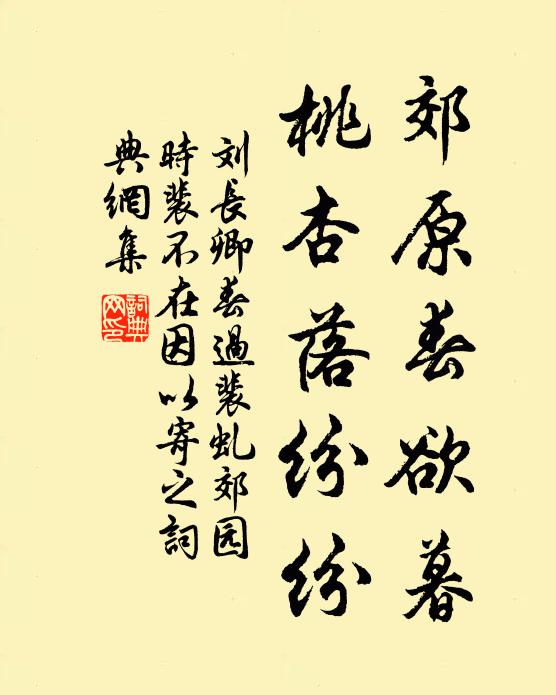 郊原春欲暮
桃杏落紛紛
刘長卿春過裴虬郊园
時裴不在因以寄之詞
典網集
詞典
网印